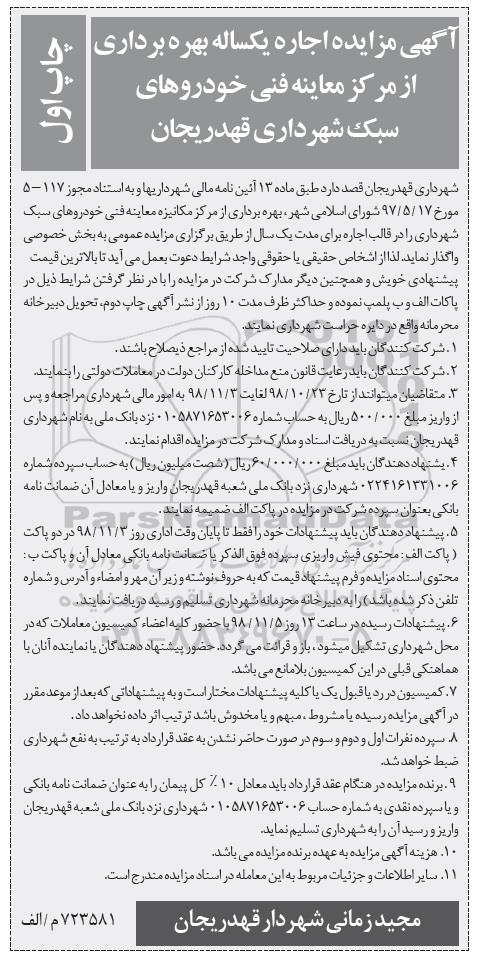 آگهی مزایده اجاره یکساله بهره برداری
از مرکز معاینه فنی خودروهای
سبک شهرداری قهدریجان
چاپ اول
شهرداری قهدریجان قصد دارد طبق ماده ۱۳ آئین نامه مالی شهرداریها و به استناد مجوز ۱۱۷ – ۵
مورخ ۹۷/۵/۱۷ شورای اسلامی شهر ، بهره برداری از مرکز مکانیزه معاینه فنی خودروهای سبک
شهرداری را در قالب اجاره برای مدت یک سال از طریق برگزاری مزایده عمومی به بخش خصوصی
واگذار نماید. لذا از اشخاص حقیقی یا حقوقی واجد شرایط دعوت بعمل می آید تا بالاترین قیمت
پیشنهادی خویش و همچنین دیگر مدارک شرکت در مزایده را با در نظر گرفتن شرایط ذیل در
پاکات الف و ب پلمپ نموده و حداکثر ظرف مدت ۱۰ روز از نشر آگهی چاپ دوم، تحویل دبیرخانه
محرمانه واقع در دایره حراست شهرداری نمایند.
۱. شرکت کنندگان باید دارای صلاحیت تایید شده از مراجع ذیصلاح باشند.
۲. شرکت کنندگان باید رعایت قانون منع مداخله کارکنان دولت در معاملات دولتی را بنمایند.
۳. متقاضیان میتوانند از تاریخ ۹۸/۱۰/۲۳ لغایت ۹۸/۱۱/۳ به امور مالی شهرداری مراجعه و پس
از واریز مبلغ ۵۰۰/۰۰۰ ریال به حساب شماره ۰۱۰۵۸۷۱۶۵۳۰۰۶ نزد بانک ملی به نام شهرداری
قهدریجان نسبت به دریافت اسناد و مدارک شرکت در مزایده اقدام نمایند.
۴. پیشنهاد دهندگان باید مبلغ ۶۰/۰۰۰/۰۰۰ ریال ( شصت میلیون ریال ) به حساب سپرده شماره
۰۲۲۴۱۶۱۳۳۱۰۰۶ شهرداری نزد بانک ملی شعبه قهدریجان واریز و یا معادل آن ضمانت نامه
بانکی بعنوان سپرده شرکت در مزایده در پاکت الف ضمیمه نمایند .
۵. پیشنهاد دهندگان باید پیشنهادات خود را فقط تا پایان وقت اداری روز ۹۸/۱۱/۳ در دو پاکت
( پاکت الف : محتوی فیش واریزی سپرده فوق الذکر یا ضمانت نامه بانکی معادل آن و پاکت ب :
محتوی اسناد مزایده و فرم پیشنهاد قیمت که به حروف نوشته و زیر آن مهر و امضاء و آدرس و شماره
تلفن ذکر شده باشد ) را به دبیرخانه محرمانه شهرداری تسلیم و رسید دریافت نمایند .
۶. پیشنهادات رسیده در ساعت ۱۳ روز ۹۸/۱۱/۵ با حضور کلیه اعضاء کمیسیون معاملات که در
محل شهرداری تشکیل میشود ، باز و قرائت می گردد. حضور پیشنهاد دهندگان یا نماینده آنان با
هماهنگی قبلی در این کمیسیون بلامانع می باشد.
۷. کمیسیون در رد یا قبول یک یا کلیه پیشنهادات مختار است و به پیشنهاداتی که بعد از موعد مقرر
در آگهی مزایده رسیده یا مشروط ، مبهم و یا مخدوش باشد ترتیب اثر داده نخواهد داد .
۸. سپرده نفرات اول و دوم و سوم در صورت حاضر نشدن به عقد قرارداد به ترتیب به نفع شهرداری
ضبط خواهد شد.
۹. برنده مزایده در هنگام عقد قرارداد باید معادل ۱۰ ٪ کل پیمان را به عنوان ضمانت نامه بانکی
و یا سپرده نقدی به شماره حساب ۰۱۰۵۸۷۱۶۵۳۰۰۶ شهرداری نزد بانک ملی شعبه قهدریجان
واریز و رسید آن را به شهرداری تسلیم نماید.
۱۰. هزینه آگهی مزایده به عهده برنده مزایده می باشد.
۱۱. سایر اطلاعات و جزئیات مربوط به این معامله در اسناد مزایده مندرج است.
مجید زمانی شهردار قهدریجان
۷۲۳۵۸۱ م / الف
ParsNamadData
۰۲۱-۸۸۳۴۹۶۷۰-۵